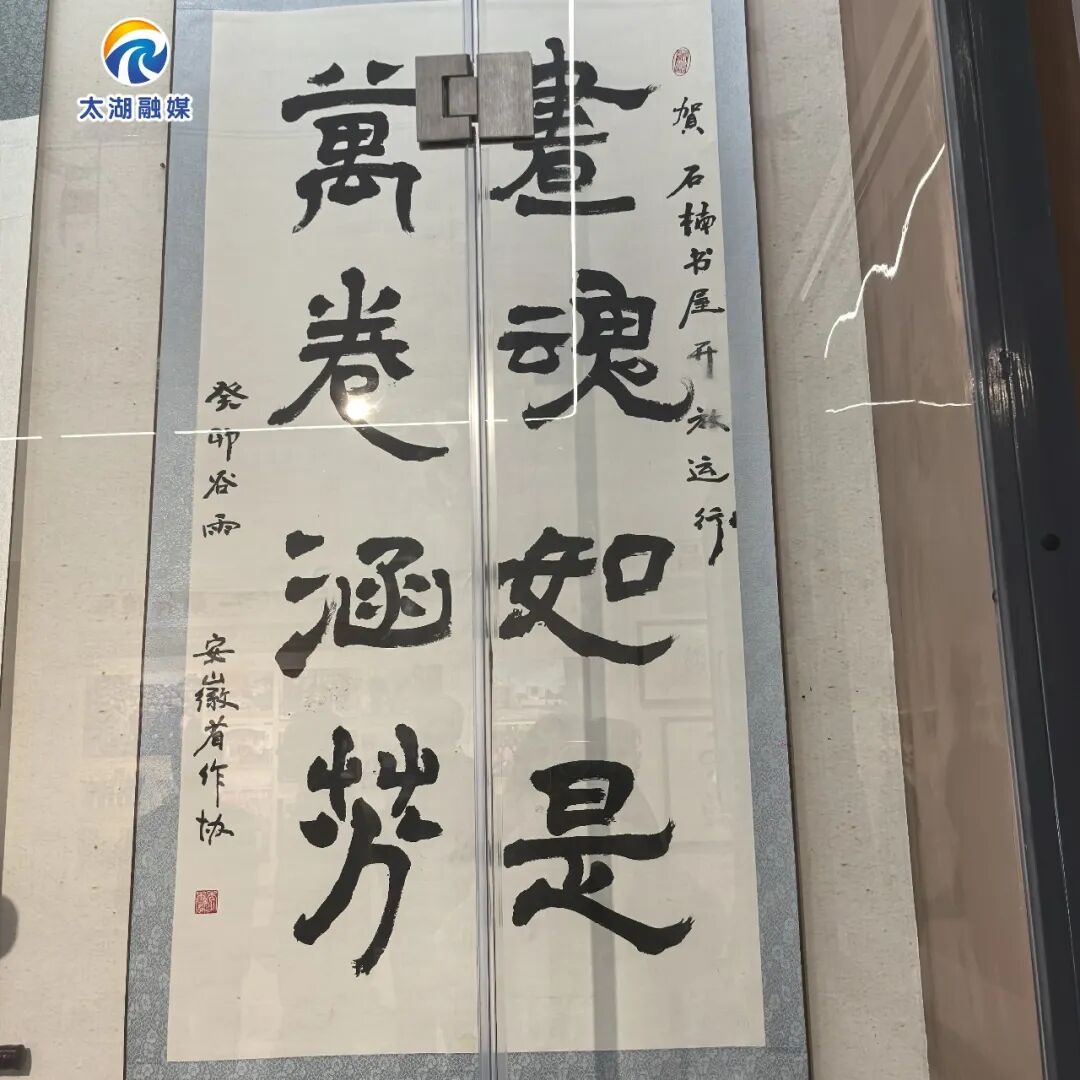 太湖融媒
賀 石楠书屋开放运行
畫魂如是
萬卷涵芳
癸卯谷雨 安徽省作协